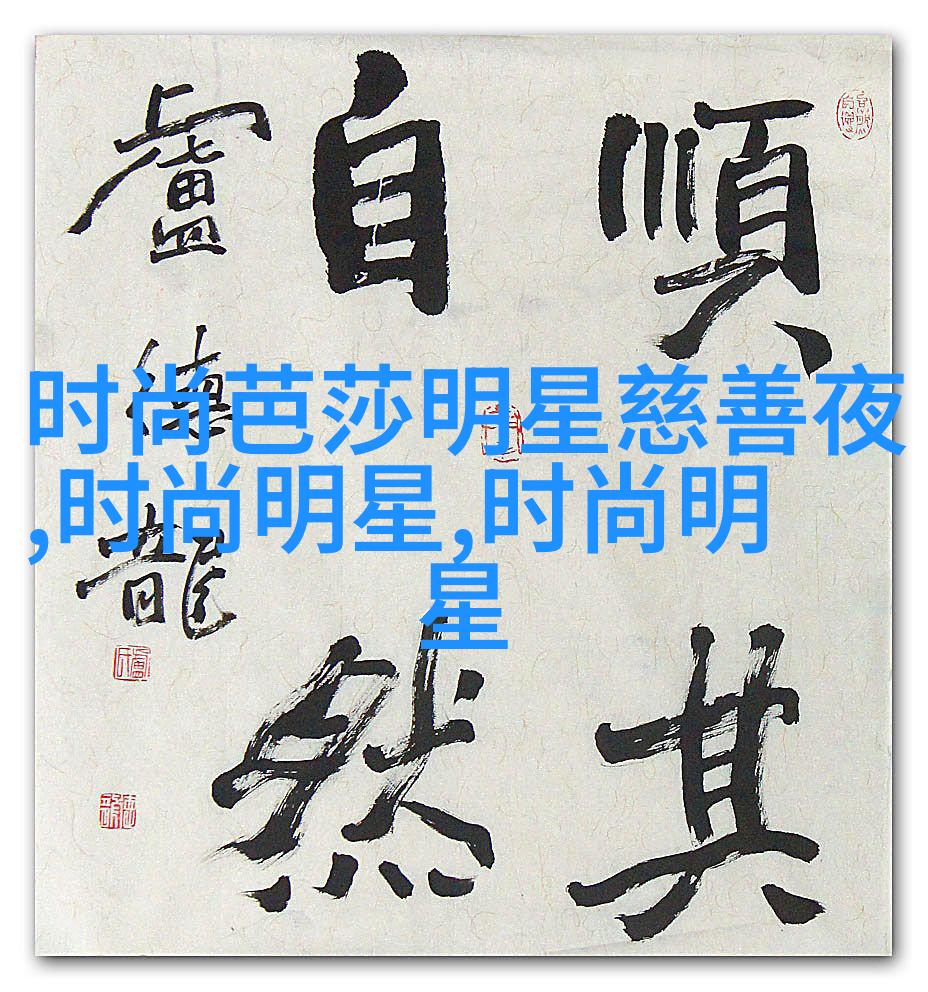 順其
自然
盧德龍
时尚芭莎明星慈善夜
,时尚明星,时尚明
星